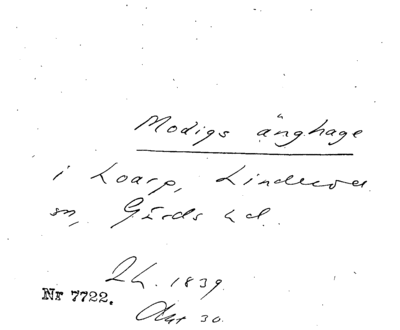 Modigs änghage
i Loarp, Linderöds
sn, Gärds hd.
Lh. 1839
Nr 7722.
Akt 30.